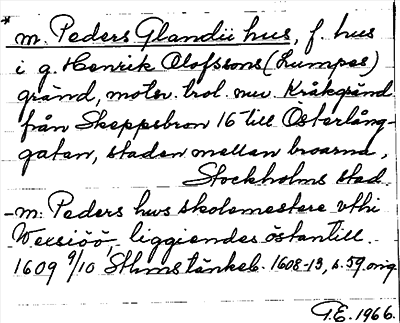 * m. Peders Glandii hus, f. hus
i g. Henrik Olofssons (Lumpes)
gränd, motsv. trol. nuv. Kråkgränd
från Skeppsbron 16 till Österlång-
gatan, staden mellan broarna,
Stockholms stad.
- m: Peders hws skolemestere vthi
Wexiöö, liggiendes östantill.
1609 9/10 Sthms tänkeb. 1608-13, s. 59 orig
P.E. 1966.